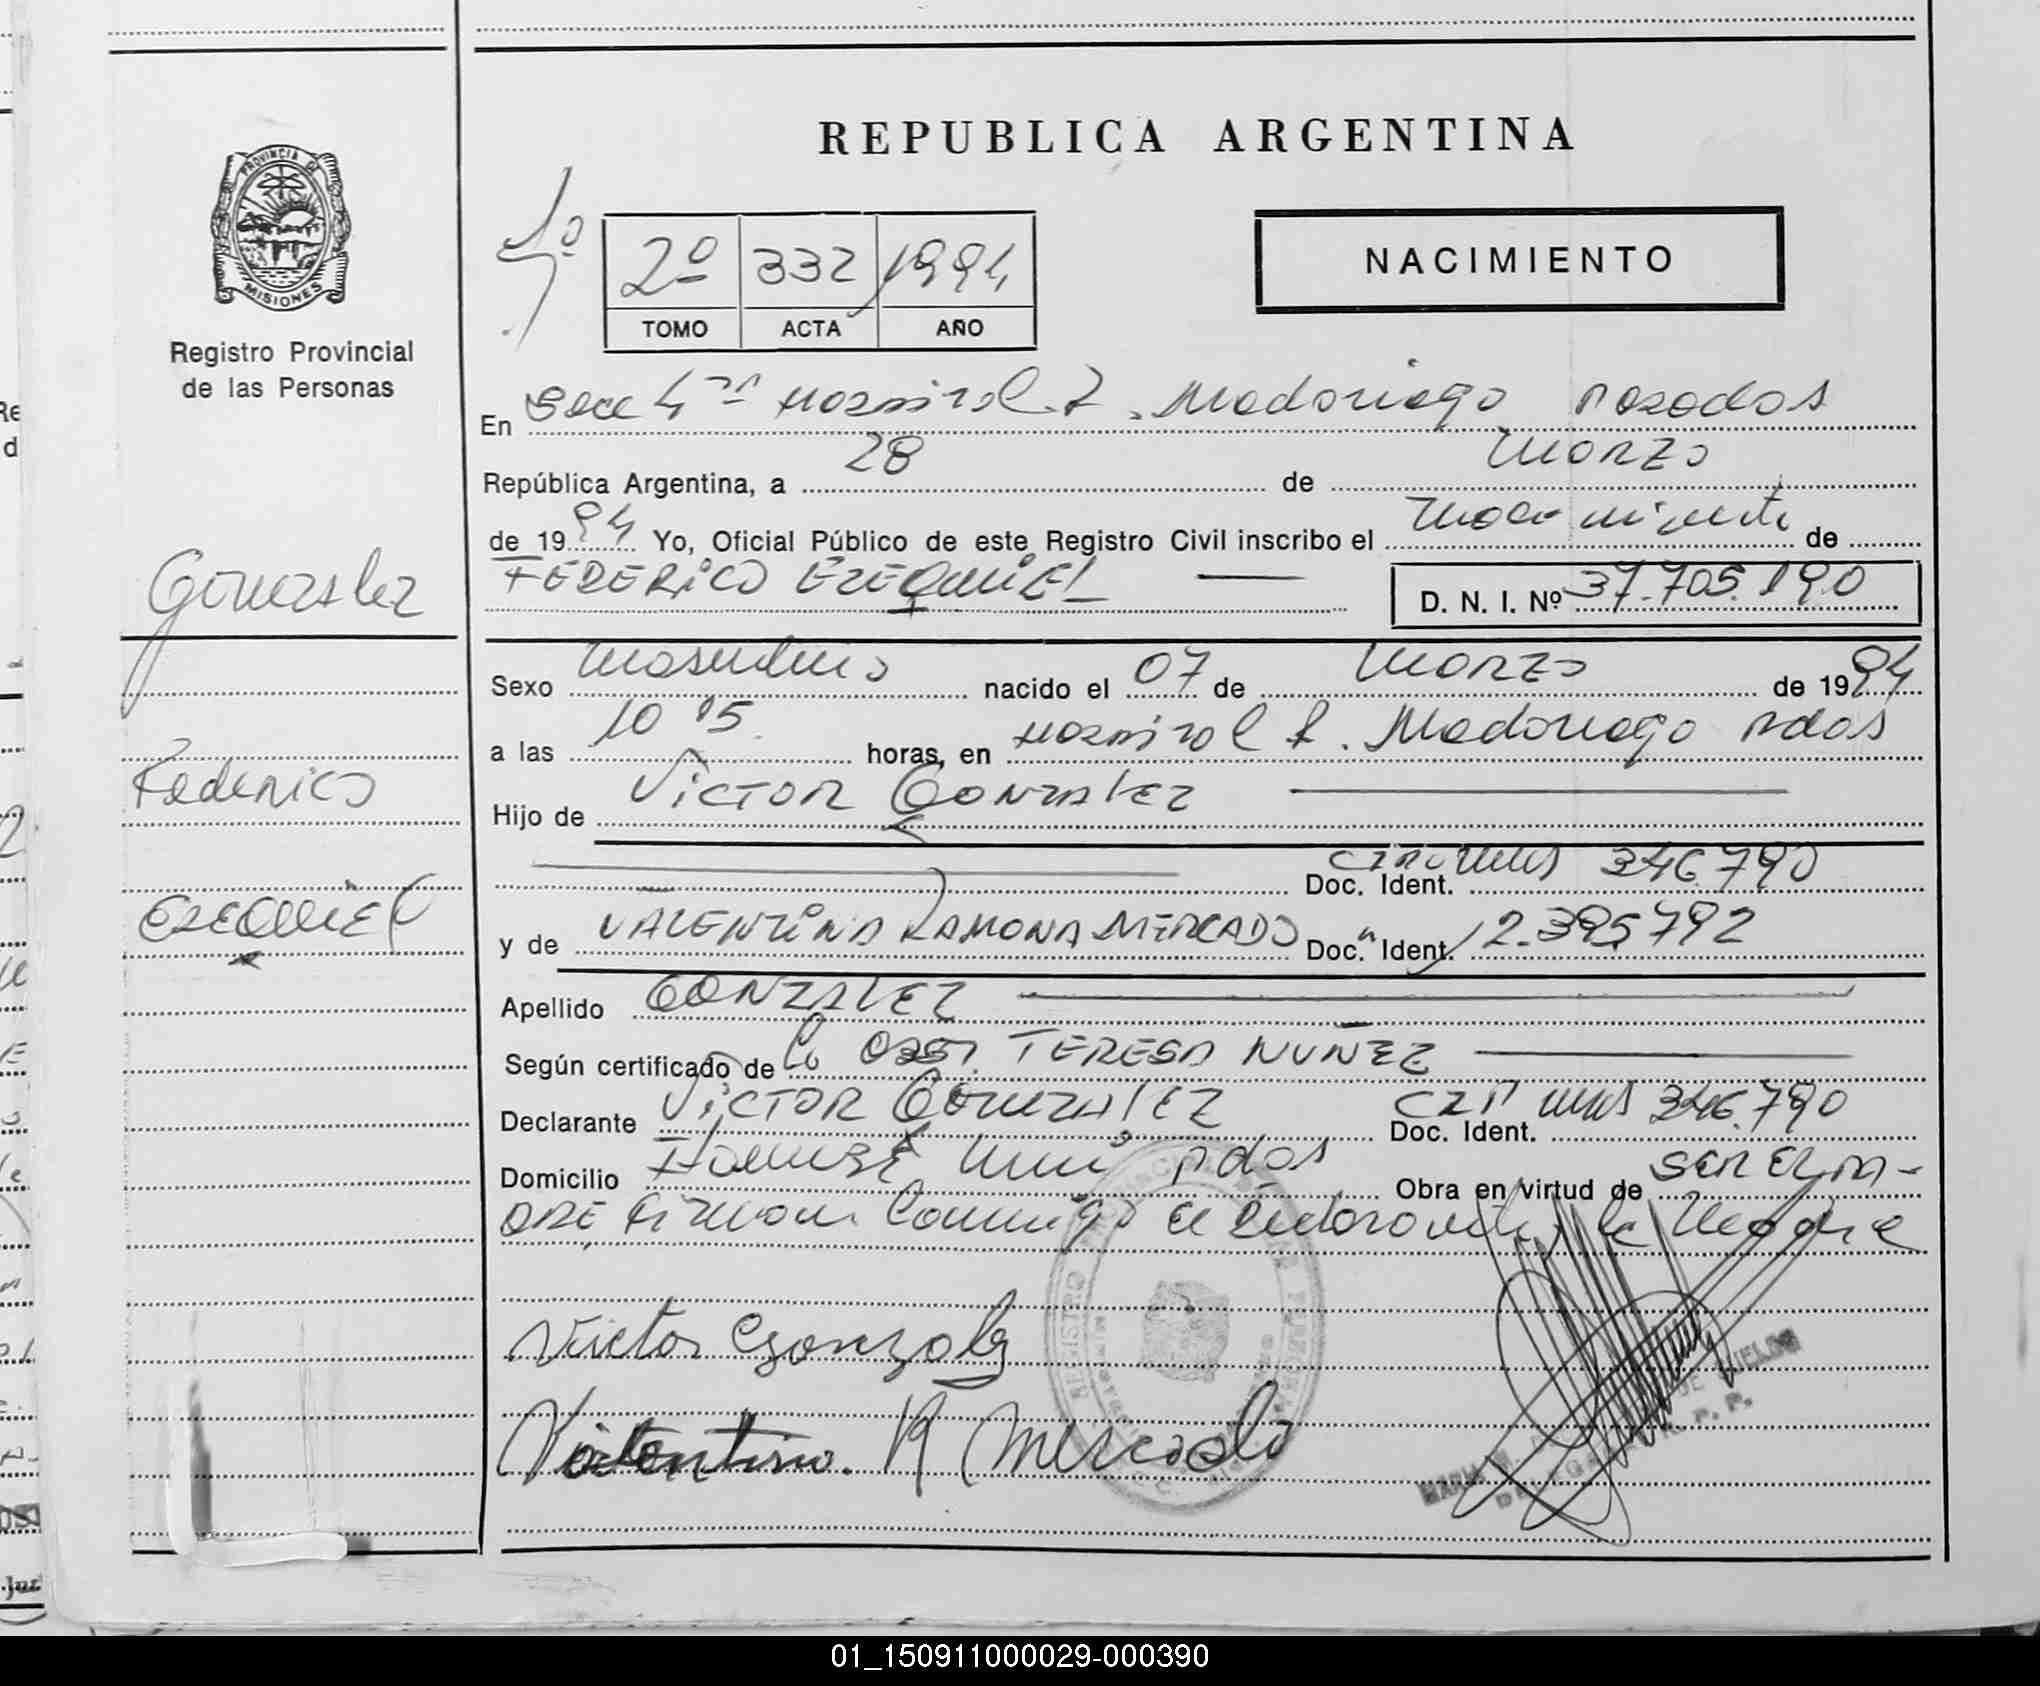 REPUBLICA ARGENTINA
PROVINCIA DE
MISIONES
Registro Provincial
de las Personas
2º 332 1994
TOMO ACTA AÑO
NACIMIENTO
En Secc 4ta Hospital R. Madariaga Posadas
República Argentina, a 28 de Marzo
de 1994 Yo, Oficial Público de este Registro Civil inscribo el nacimiento de
FEDERICO EZEQUIEL — D. N. I. Nº 37.705.190
Gonzalez
Sexo Masculino nacido el 07 de Marzo de 1994
a las 10 15 horas, en Hospital R. Madariaga Pdas
Federico
Hijo de VICTOR GONZALEZ
Doc. Ident. 346.790
Ezequiel
y de VALENTINA RAMONA MERCADO Doc. Ident. 12.395.792
Apellido GONZALEZ
Según certificado de la Obst. TERESA NUÑEZ
Declarante VICTOR GONZALEZ Doc. Ident. 346.790
Domicilio Pdas Obra en virtud de SER EL PA-
DRE, Firman Conmigo el Declarante y la Madre
Victor Gonzalez
Valentina R Mercado
01_150911000029-000390